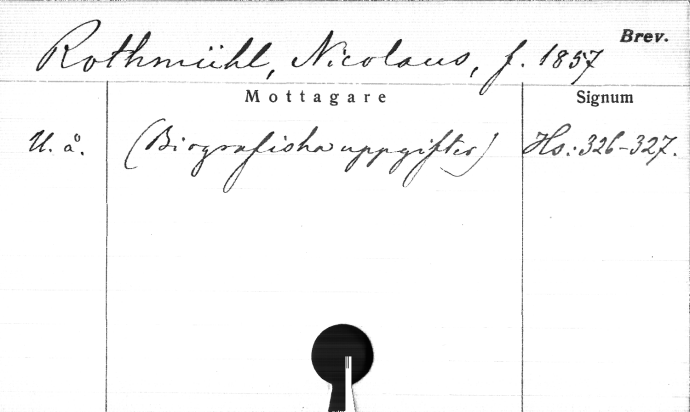 Brev.
Rothmühl, Nicolaus, f. 1857
Mottagare Signum
U. å. (Biografiska uppgifter) Hs.: 326-327.